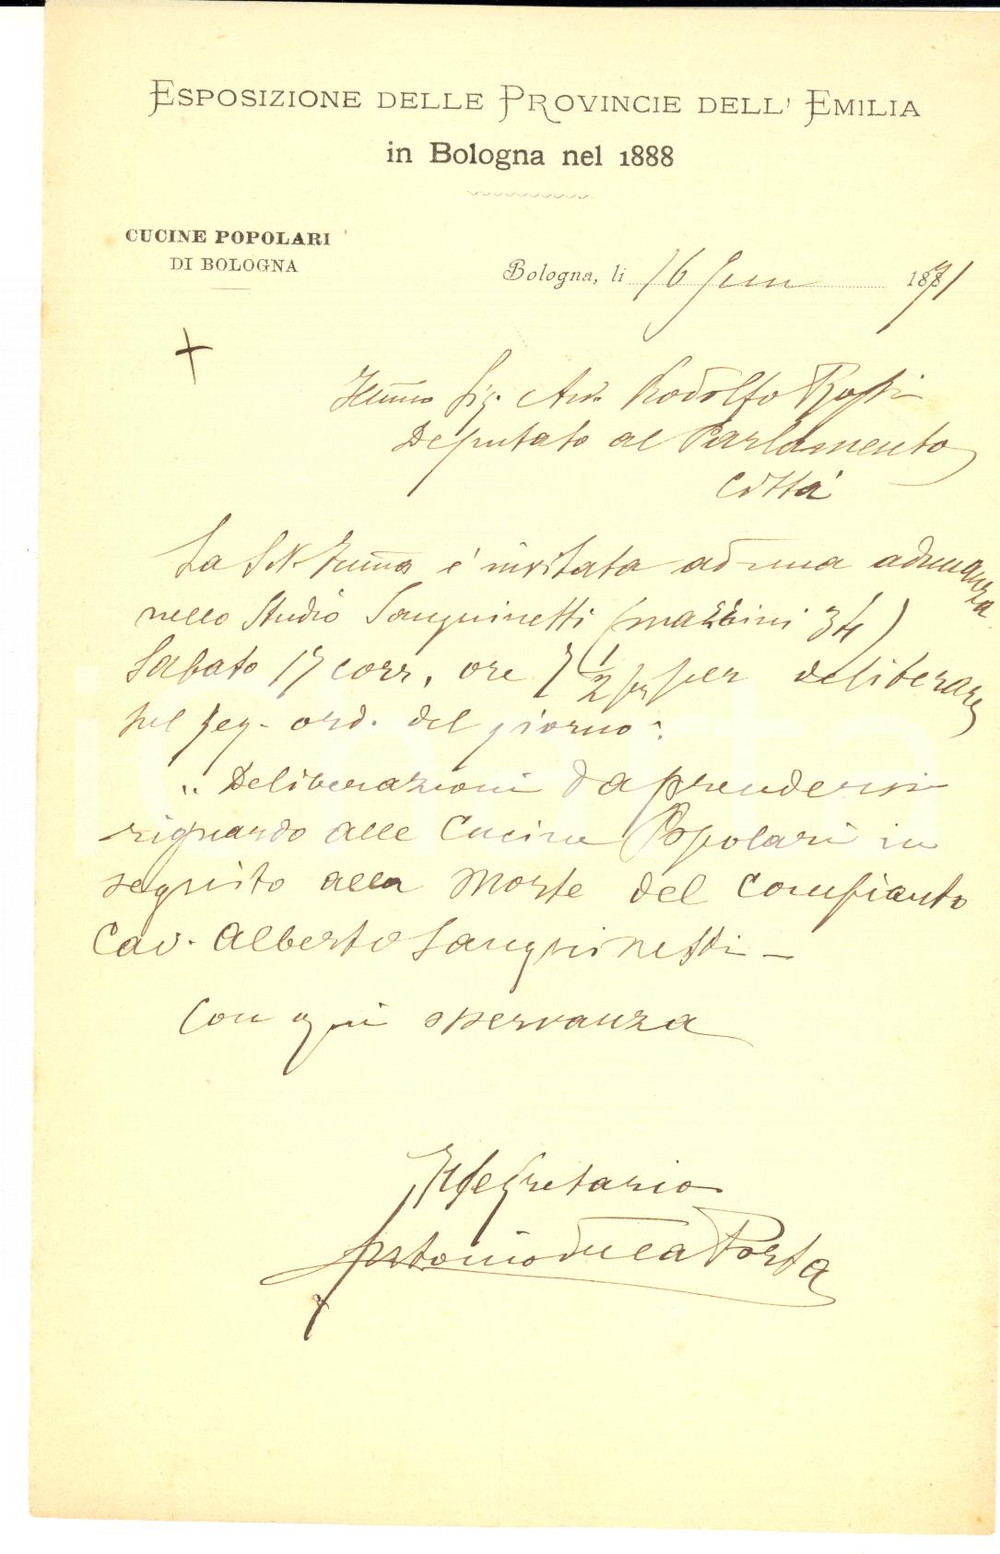 ESPOSIZIONE DELLE PROVINCIE DELL' EMILIA
in Bologna nel 1888
CUCINE POPOLARI
DI BOLOGNA
Bologna, li 16 Genn 1891
Illm̃o Sig. Avv. Rodolfo Rossi
Deputato al Parlamento
Città
La S.V. Illm̃a è invitata ad una adunanza
nello Studio Sanguinetti (Mazzini 34)
Sabato 17 corr., ore 7 1/2 per deliberare
sul seg. ord. del giorno:
„ Deliberazioni da prendersi
riguardo alle Cucine Popolari in
seguito alla Morte del Compianto
Cav. Alberto Sanguinetti –
Con ogni osservanza
Il Segretario
Antonio della Porta